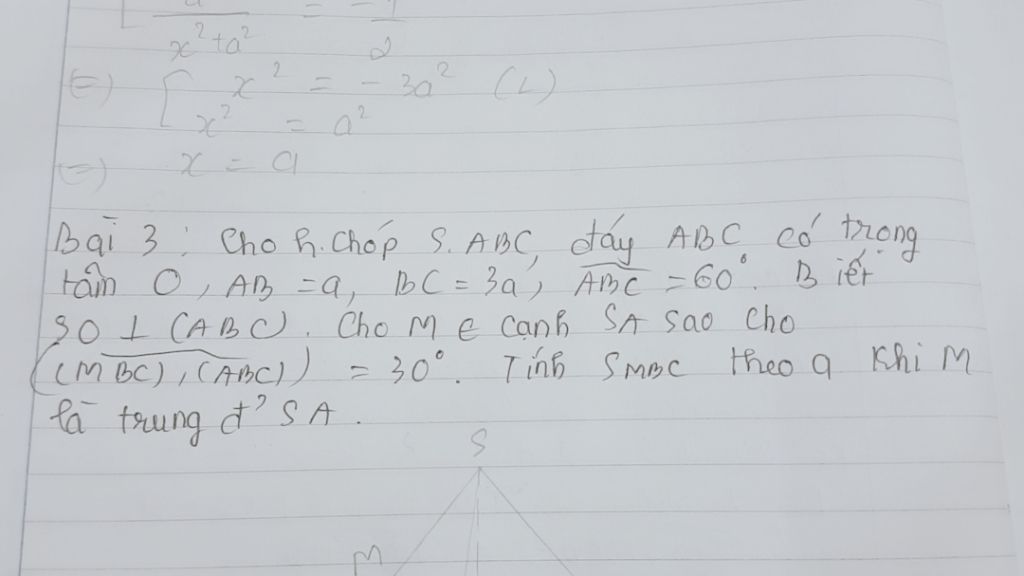 x²+a² = -1/2
⇔) [ x² = -3a² (L)
x² = a²
⇔) x = a
Bài 3 : Cho h.chóp S.ABC, đáy ABC có trọng
tâm O, AB = a, BC = 3a, ABC = 60°. Biết
SO ⊥ (ABC). Cho M ∈ cạnh SA sao cho
((MBC),(ABC)) = 30°. Tính SMBC theo a khi M
là trung đ' SA.
S
M